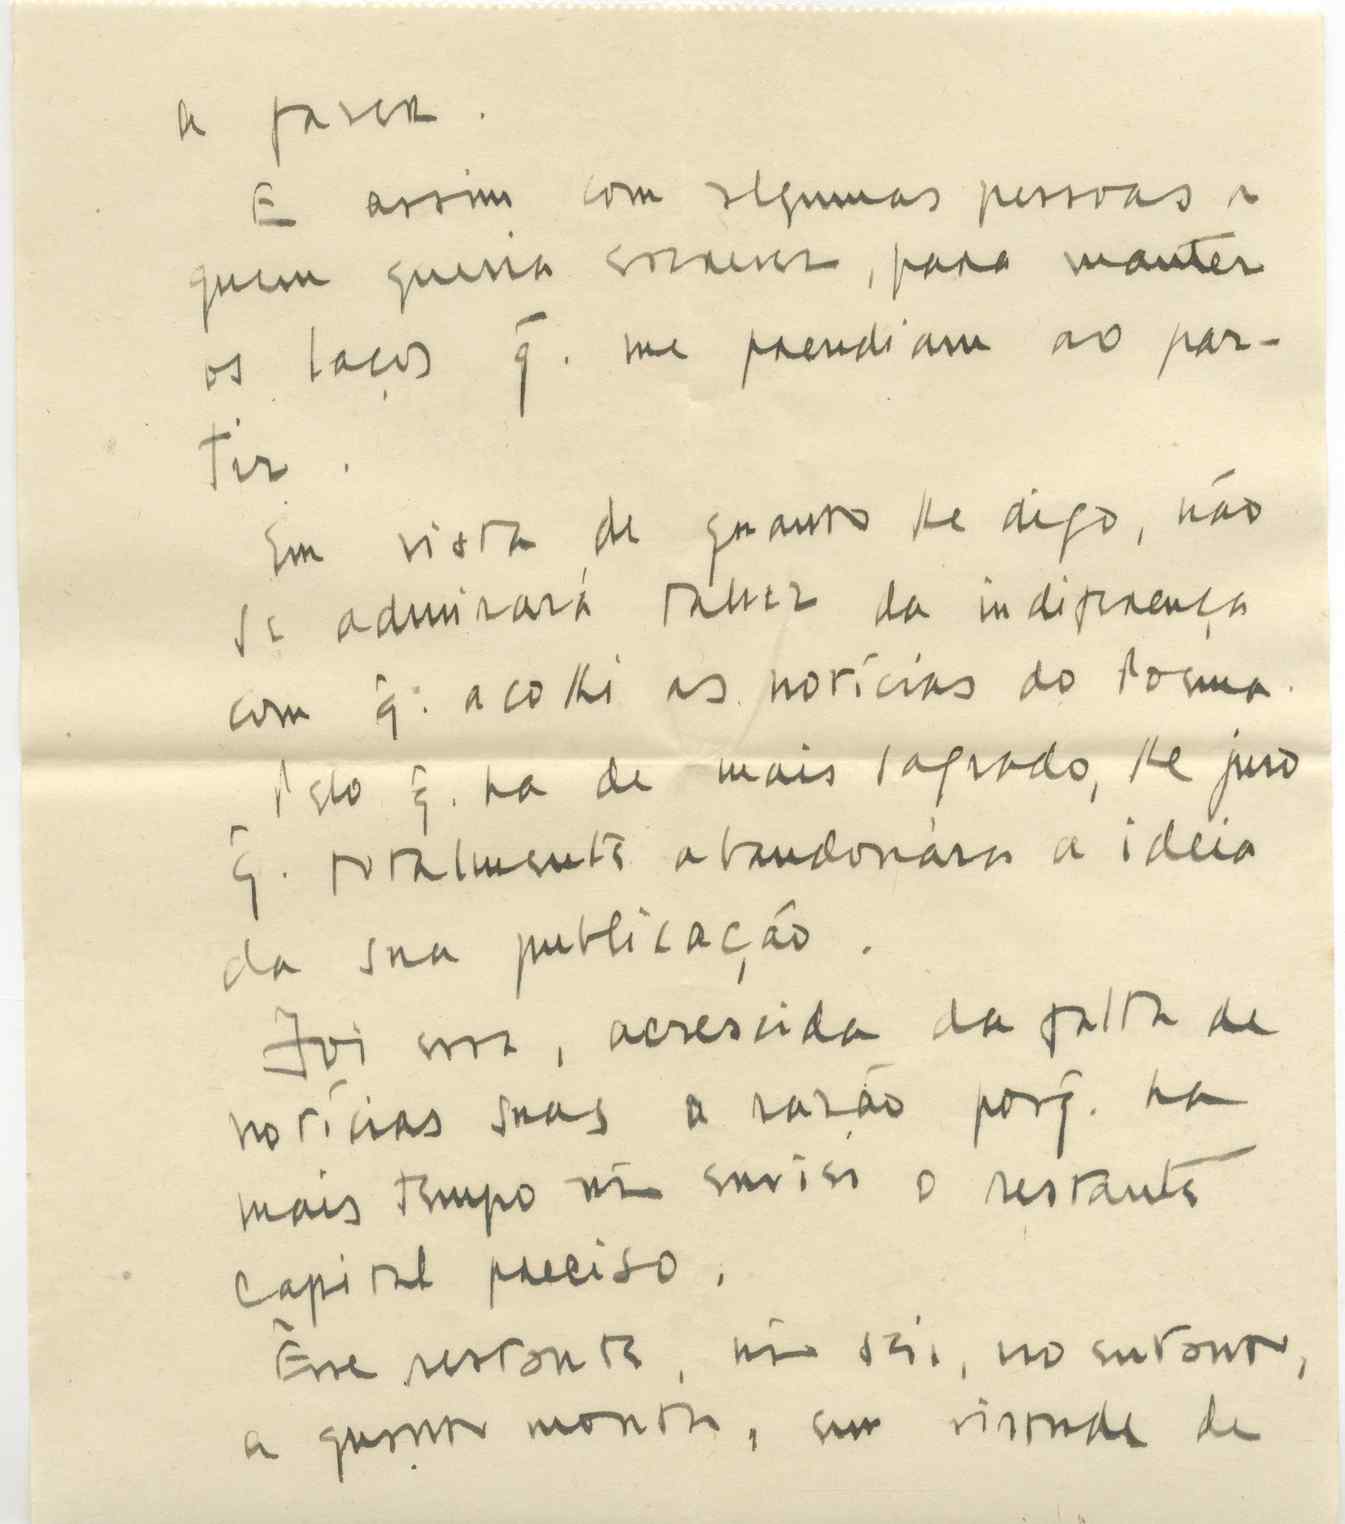 a fazer.
E assim com algumas pessoas a
quem queria escrever, para manter
os laços q̃. me prendiam ao par-
tir.
Em vista de quanto lhe digo, não
se admirará talvez da indiferença
com q̃. acolhi as notícias do Poema.
Pelo q̃. ha de mais sagrado, lhe juro
q̃. totalmente abandonára a ideia
da sua publicação.
Foi essa, acrescida da falta de
notícias suas a razão porq̃. ha
mais tempo não enviei o restante
capital preciso.
Êsse restante, não sei, no entanto,
a quanto monta, em virtude de